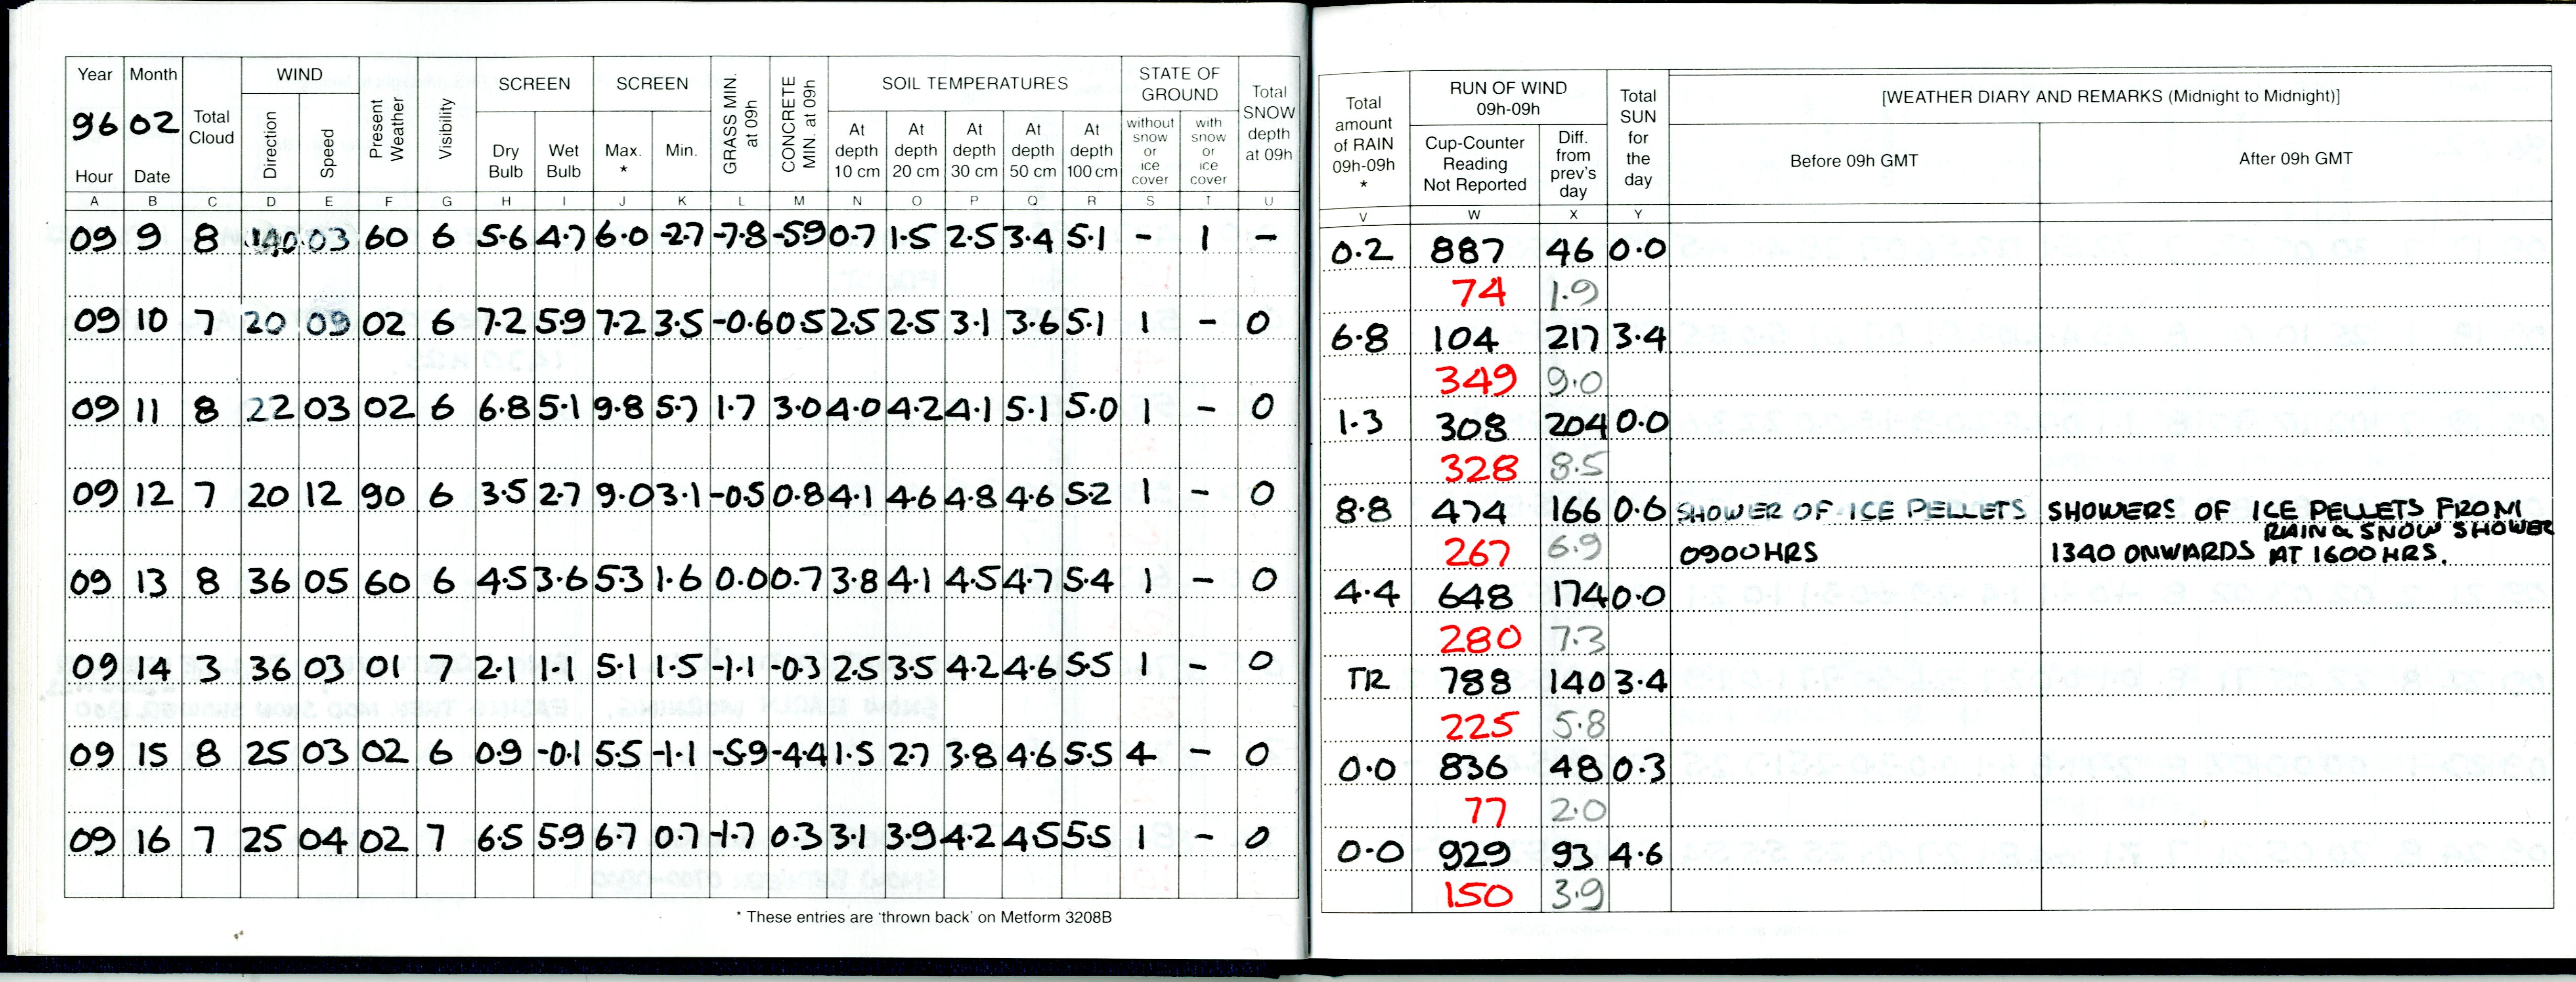 Year Month WIND SCREEN SCREEN GRASS MIN. at 09h CONCRETE MIN. at 09h SOIL TEMPERATURES STATE OF GROUND Total SNOW depth at 09h
96 02 Total Cloud Direction Speed Present Weather Visibility Dry Bulb Wet Bulb Max. * Min. At depth 10 cm At depth 20 cm At depth 30 cm At depth 50 cm At depth 100 cm without snow or ice cover with snow or ice cover
Hour Date
A B C D E F G H I J K L M N O P Q R S T U
09 9 8 140 03 60 6 5.6 4.7 6.0 -2.7 -7.8 -5.9 0.7 1.5 2.5 3.4 5.1 - 1 -
09 10 7 20 09 02 6 7.2 5.9 7.2 3.5 -0.6 0.5 2.5 2.5 3.1 3.6 5.1 1 - 0
09 11 8 22 03 02 6 6.8 5.1 9.8 5.7 1.7 3.0 4.0 4.2 4.1 5.1 5.0 1 - 0
09 12 7 20 12 90 6 3.5 2.7 9.0 3.1 -0.5 0.8 4.1 4.6 4.8 4.6 5.2 1 - 0
09 13 8 36 05 60 6 4.5 3.6 5.3 1.6 0.0 0.7 3.8 4.1 4.5 4.7 5.4 1 - 0
09 14 3 36 03 01 7 2.1 1.1 5.1 1.5 -1.1 -0.3 2.5 3.5 4.2 4.6 5.5 1 - 0
09 15 8 25 03 02 6 0.9 -0.1 5.5 -1.1 -5.9 -4.4 1.5 2.7 3.8 4.6 5.5 4 - 0
09 16 7 25 04 02 7 6.5 5.9 6.7 0.7 -1.7 0.3 3.1 3.9 4.2 4.5 5.5 1 - 0
* These entries are 'thrown back' on Metform 3208B
Total amount of RAIN 09h-09h * RUN OF WIND 09h-09h Total SUN for the day [WEATHER DIARY AND REMARKS (Midnight to Midnight)]
Cup-Counter Reading Not Reported Diff. from prev's day Before 09h GMT After 09h GMT
V W X Y
0.2 887 46 0.0
74 1.9
6.8 104 217 3.4
349 9.0
1.3 308 204 0.0
328 8.5
8.8 474 166 0.6 SHOWER OF ICE PELLETS SHOWERS OF ICE PELLETS FROM
RAIN & SNOW SHOWER
267 6.9 0900HRS 1340 ONWARDS AT 1600HRS.
4.4 648 174 0.0
280 7.3
TR 788 140 3.4
225 5.8
0.0 836 48 0.3
77 2.0
0.0 929 93 4.6
150 3.9